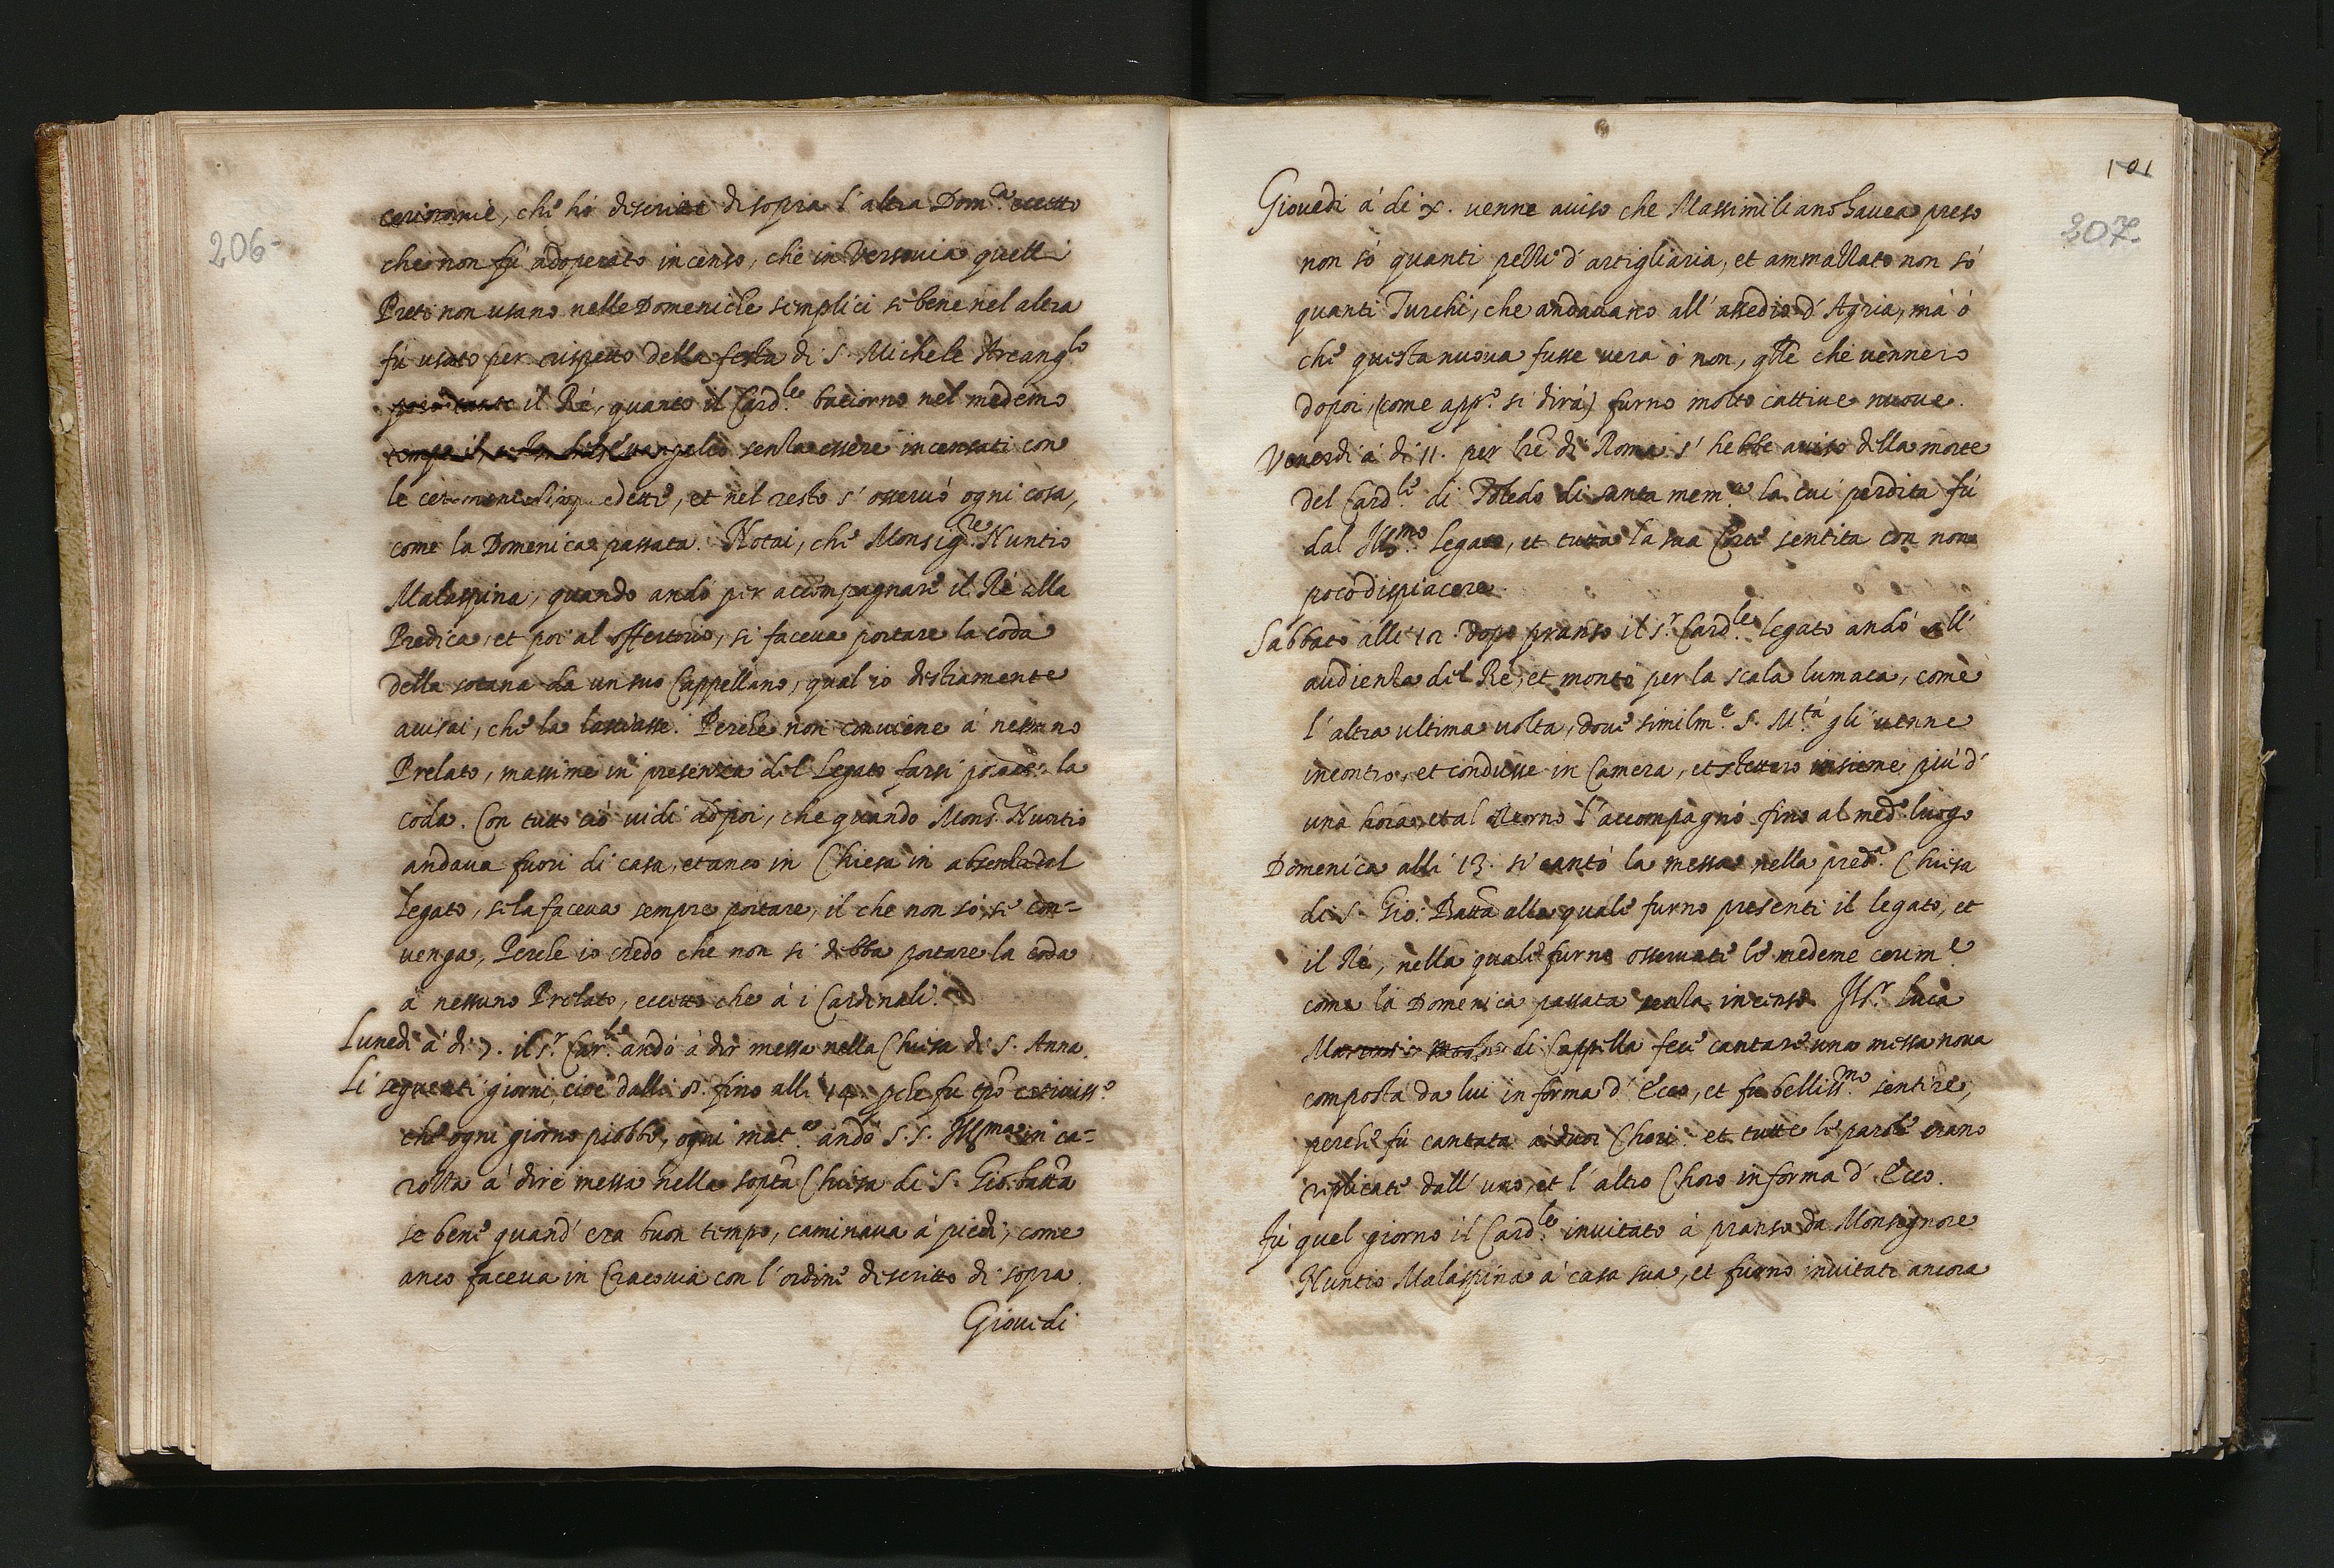 206
cerimonie, che hò descritte di sopra l'altra Dom.ca eccetto
che non fù adoperato incenso, che in Versovia quelli
Preti non usano nelle Domeniche semplici se bene nel altra
fù usato per rispetto della festa di S. Michele Arcang.lo
però tanto il Rè, quanto il Card.le baciorno nel medemo
tempo il evangelio senza essere incensati con
le cerimonie edette, et nel resto s'osservò ogni cosa,
come la Domenica passata. Notai, che Monsig.re Nuntio
Malaspina, quando andò per accompagnare il Rè alla
Predica, et poi al offertorio, si faceva portare la coda
della sotana da un suo Cappellano, qual io destramente
avisai, che la lasciasse. Perche non conviene à nessuno
Prelato, massime in presenza del Legato farsi portare la
coda. Con tutto ciò vidi dopoi, che quando Mons.r Nuntio
andava fuori di casa, et anco in Chiesa in absenza del
Legato, se la faceva sempre portare, il che non sò se con=
venga, Perche io credo che non si debba portare la coda
à nessuno Prelato, eccetto che à i Cardinali.
Lunedì à di 7. il s.r Car.le andò à dir messa nella Chiesa di S. Anna.
Li seguenti giorni, cioè dalli 8. fino alli 14. pche fu tpo cativiss.o
che ogni giorno piobbe, ogni mat.a andò S. S. Ill.ma in ca=
rozza à dire messa nella sop.ta Chiesa di S. Gio. batta
se bene quand'era buon tempo, caminava à piedi, come
anco faceva in Cracovia con l'ordine descritto di sopra.
Giovedì
101
207.
Giovedì à di x. venne aviso che Massimiliano havea preso
non sò quanti pezzi d'artigliaria, et ammazzato non sò
quanti Turchi, che andavano all'assedio d'Agria, mà ò
che questa nuova fusse vera ò non, qlle che vennero
dopoi, (come app.o si dirà) furno molto cattive nuove.
Venerdì à di 11. per lre di Roma s'hebbe aviso della morte
del Card.le di Toledo di santa mem.a la cui perdita fù
dal Ill.mo Legato, et tutta la sua Corte sentita con non
poco dispiacere.
Sabbato alli 12. dopo pranso il s.r Card.le Legato andò all'
audienza del Rè, et montò per la scala lumaca, come
l'altra ultima volta, dove similm.e S. M.tà gli venne
incontro, et condusse in Camera, et stettero insieme più d'
una hora, et al ritorno l'accompagnò fino al med.o luogo
Domenica alli 13. si cantò la messa nella pred.a Chiesa
di S. Gio: Batta alla quale furno presenti il legato, et
il Rè, nella quale furno osservate le medeme cerim.e
come la Domenica passata senza incenso. Il S.r Luca
Marentio di Cappella fece cantare una messa nova
composta da lui in forma d'Ecco, et fu belliss.mo sentire,
perche fù cantata à duoi Chori. et tutte le parole erano
replicate dall'uno, et l'altro Choro in forma d'Ecco.
Fù quel giorno il Card.le invitato à pranso da Monsignore
Nuntio Malaspina à casa sua, et furno invitati ancora